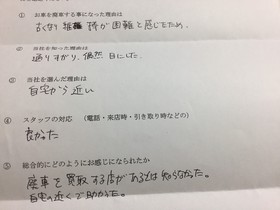 ① お車を廃車する事になった理由は
古くなり維持が困難と感じたため。
② 当社を知った理由は
通りすがり、偶然目にした。
③ 当社を選んだ理由は
自宅から近い
④ スタッフの対応 (電話・来店時・引き取り時などの)
良かった
⑤ 総合的にどのようにお感じになられたか
廃車を買取する店があるとは知らなかった。
自宅の近くで助かった。